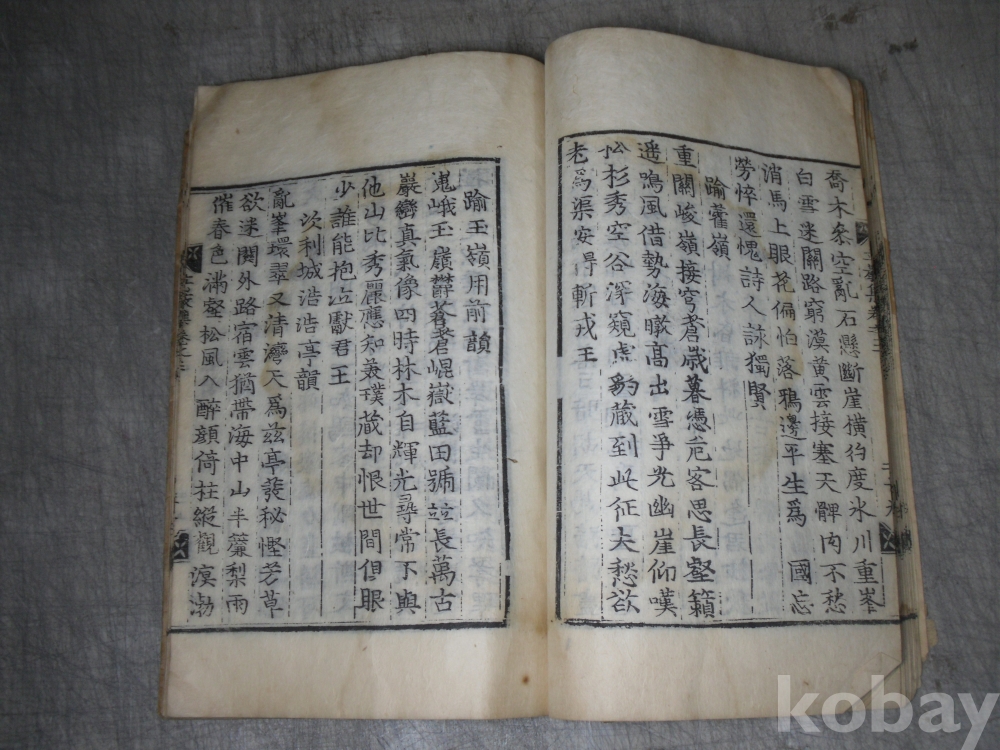 喬木叅空亂石懸斷崖橫彴度氷川重峯
白雪迷關路窮漠黃雲接塞天髀肉不愁
消馬上眼花偏怕落鴉邊平生爲 國忘
勞悴還愧詩人詠獨賢
踰藿嶺
重關峻嶺接穹蒼歲暮憑危客思長壑籟
遥鳴風借勢海暾高出雪爭光幽崖仰嘆
松杉秀空谷深窺虎豹藏到此征夫愁欲
老爲渠安得斬戎王
踰玉嶺用前韻
嵬峨玉嶺鬱蒼蒼崐嶽藍田號並長萬古
巖巒真氣像四時林木自輝光尋常不與
他山比秀麗應知美璞藏却恨世間俱眼
少誰能抱泣獻君王
次利城浩浩亭韻
亂峯環翠又清灣天爲兹亭發秘慳芳草
欲迷関外路宿雲猶帶海中山半簾梨雨
催春色滿壑松風入醉顔倚柱縱觀溟渤
kobay